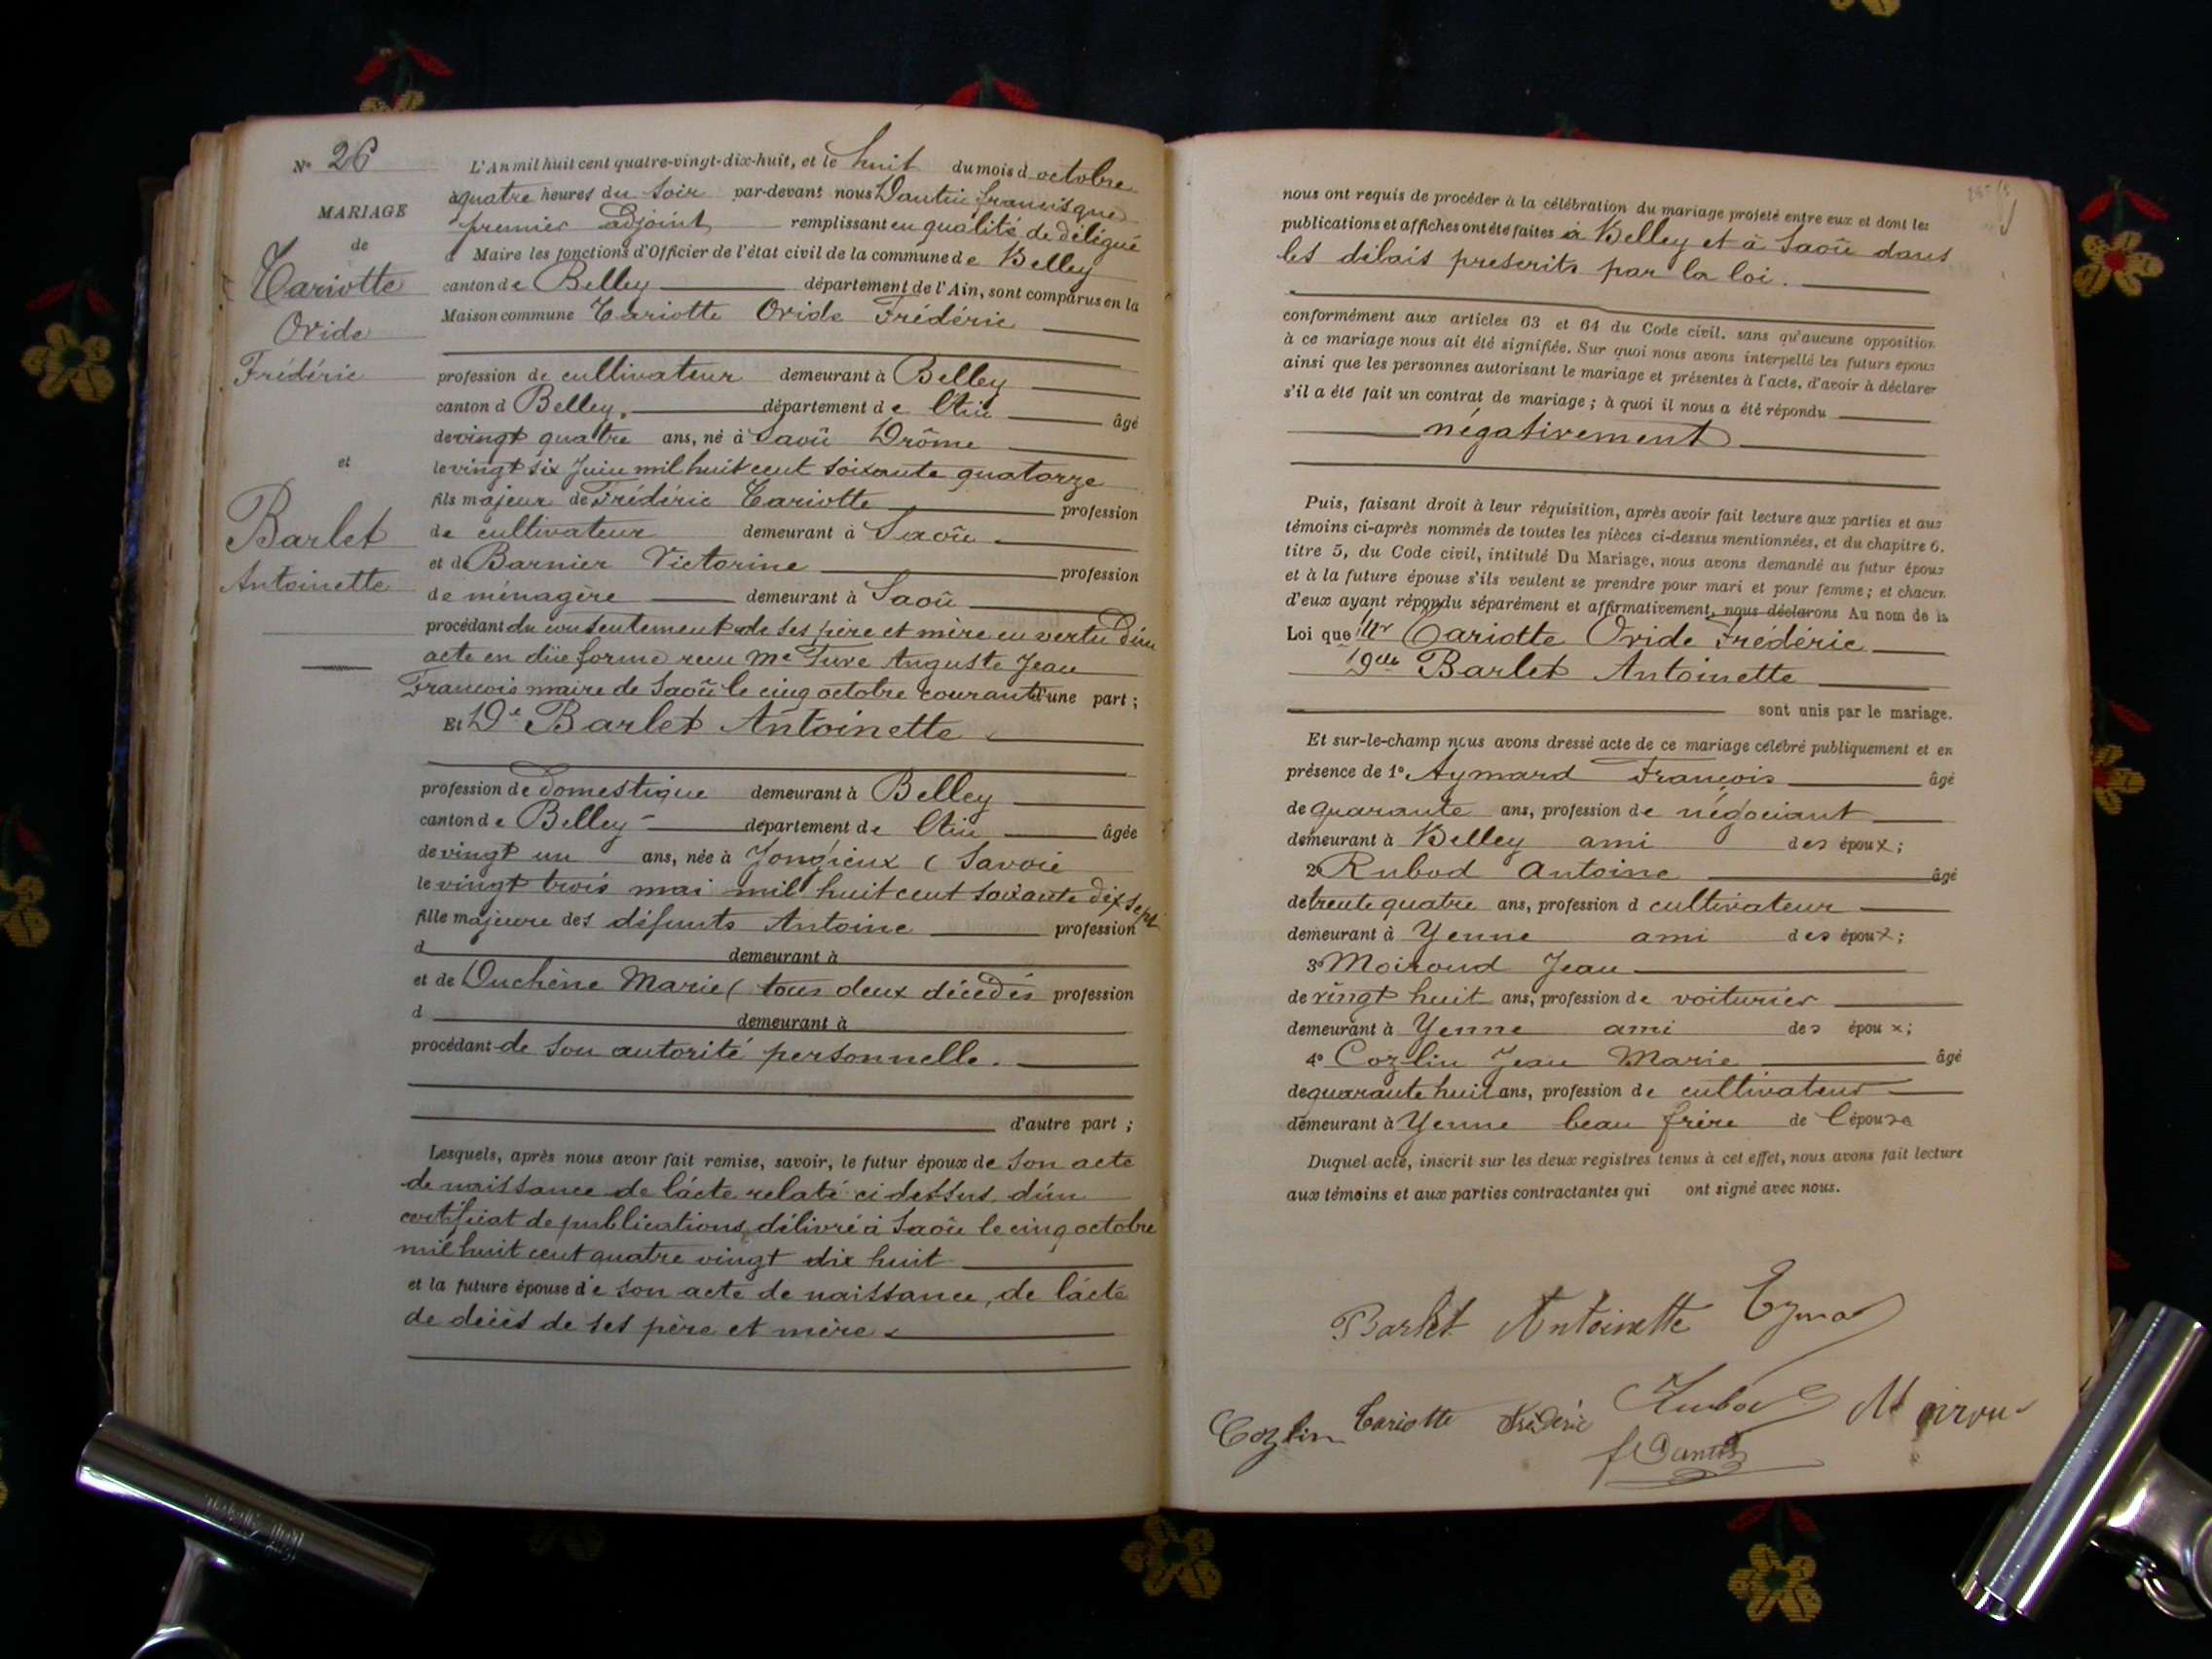 Nº 26
MARIAGE
de
Cariotte
Ovide
Frédéric
et
Barlet
Antoinette
L'An mil huit cent quatre-vingt-dix-huit, et le huit du mois d octobre
à quatre heures du soir par-devant nous Dantin francisque
premier adjoint remplissant en qualité de délégué
d Maire les fonctions d'Officier de l'état civil de la commune de Belley
canton de Belley département de l'Ain, sont comparus en la
Maison commune Cariotte Ovide Frédéric
profession de cultivateur demeurant à Belley
canton d Belley. département de l'Ain âgé
de vingt quatre ans, né à Saoû Drôme
le vingt six Juin mil huit cent soixante quatorze
fils majeur de Frédéric Cariotte profession
de cultivateur demeurant à Saoû
et d Barnier Victorine profession
de ménagère demeurant à Saoû
procédant du consentement de ses père et mère en vertu d'un
acte en düe forme recu Me Ture Auguste Jean
Francois maire de Saoû le cinq octobre courant d'une part ;
Et De Barlet Antoinette
profession de domestique demeurant à Belley
canton de Belley département de l'Ain âgée
de vingt un ans, née à Jongieux ( Savoie
le vingt trois mai mil huit cent soixante dix sept
fille majeure des défunts Antoine profession
d demeurant à
et de Duchêne Marie ( tous deux décédés profession
d demeurant à
procédant de son autorité personnelle.
d'autre part ;
Lesquels, après nous avoir fait remise, savoir, le futur époux de son acte
de naissance de l'acte relaté ci dessus, d'un
certificat de publications délivré à Saoû le cinq octobre
mil huit cent quatre vingt dix huit
et la future épouse de son acte de naissance, de l'acte
de décès de ses père et mère
nous ont requis de procéder à la célébration du mariage projeté entre eux et dont les
publications et affiches ont été faites à Belley et à Saoû dans
les délais prescrits par la loi.
conformément aux articles 63 et 64 du Code civil. sans qu'aucune opposition
à ce mariage nous ait été signifiée. Sur quoi nous avons interpellé les futurs époux
ainsi que les personnes autorisant le mariage et présentes à l'acte, d'avoir à déclarer
s'il a été fait un contrat de mariage ; à quoi il nous a été répondu
négativement
Puis, faisant droit à leur réquisition, après avoir fait lecture aux parties et aux
témoins ci-après nommés de toutes les pièces ci-dessus mentionnées, et du chapitre 6.
titre 5, du Code civil, intitulé Du Mariage, nous avons demandé au futur époux
et à la future épouse s'ils veulent se prendre pour mari et pour femme ; et chacun
d'eux ayant répondu séparément et affirmativement, nous déclarons Au nom de la
Loi que Mr Cariotte Ovide Frédéric
Delle Barlet Antoinette
sont unis par le mariage.
Et sur-le-champ nous avons dressé acte de ce mariage célébré publiquement et en
présence de 1º Aymard François âgé
de quarante ans, profession de négociant
demeurant à Belley ami des époux ;
2º Rubod Antoine âgé
de trente quatre ans, profession d cultivateur
demeurant à Yenne ami des époux ;
3º Moiroud Jean
de vingt huit ans, profession de voiturier
demeurant à Yenne ami des époux ;
4º Cozlin Jean Marie âgé
de quarante huit ans, profession de cultivateur
demeurant à Yenne beau frère de l'épouse
Duquel acte, inscrit sur les deux registres tenus à cet effet, nous avons fait lecture
aux témoins et aux parties contractantes qui ont signé avec nous.
Barlet Antoinette
Cozlin Cariotte Frédéric